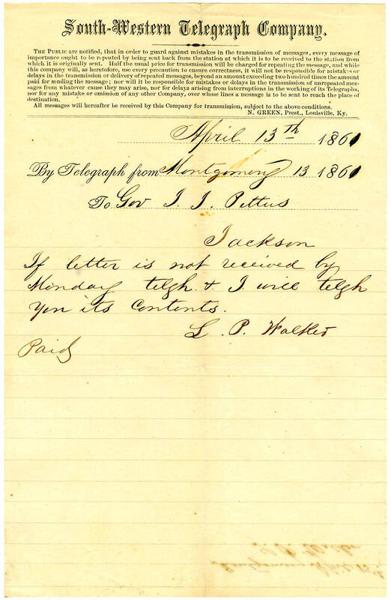 South-Western Telegraph Company.
THE PUBLIC are notified, that in order to guard against mistakes in the transmission of messages, every message of
importance ought to be repeated by being sent back from the station at which it is to be received to the station from
which it is originally sent. Half the usual price for transmission will be charged for repeating the message, and while
this company will, as heretofore, use every precaution to ensure correctness, it will not be responsible for mistakes or
delays in the transmission or delivery of repeated messages, beyond an amount exceeding two hundred times the amount
paid for sending the message; nor will it be responsible for mistakes or delays in the transmission of unrepeated messa-
ges from whatever cause they may arise, nor for delays arising from interruptions in the working of its Telegraphs,
nor for any mistake or omission of any other Company, over whose lines a message is to be sent to reach the place of
destination.
All messages will hereafter be received by this Company for transmission, subject to the above conditions.
N. GREEN, Prest., Louisville, Ky.
April 13th 1861
By Telegraph from Montgomery 13 1861
To Gov J. J. Pettus
Jackson
If letter is not received by
Monday telgh & I will telgh
you its contents.
L. P. Walker
Paid